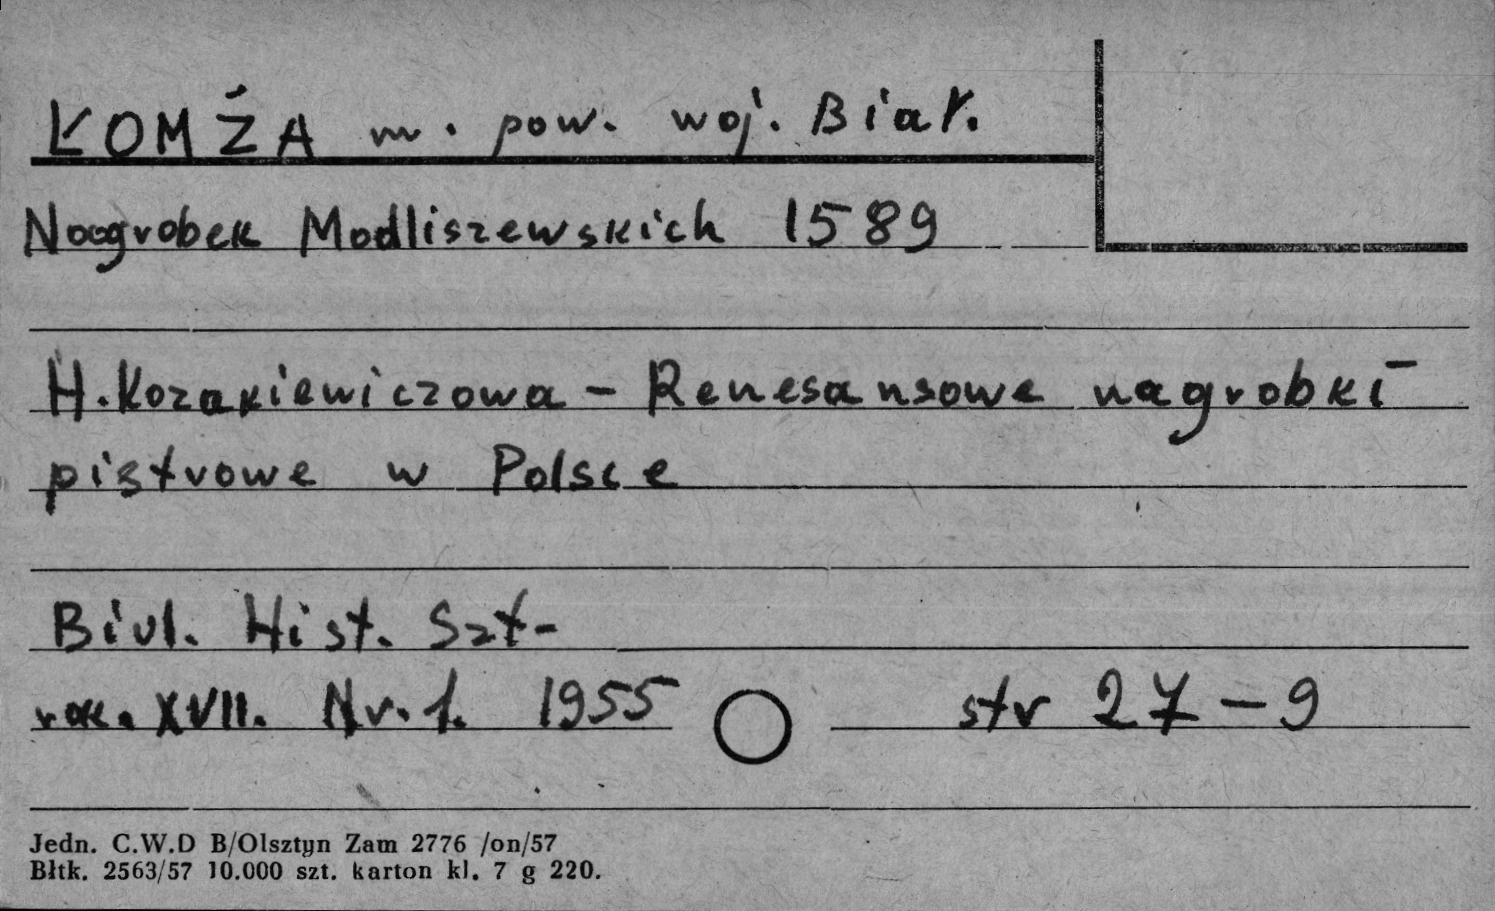 ŁOMŻA m. pow. woj. Biał.
Nagrobek Modliszewskich 1589
H. Kozakiewiczowa – Renesansowe nagrobki
piętrowe w Polsce
Biul. Hist. Szt-
rok. XVII. Nr. 1. 1955 str 27-9
Jedn. C.W.D B/Olsztyn Zam 2776 /on/57
Błtk. 2563/57 10.000 szt. karton kl. 7 g 220.